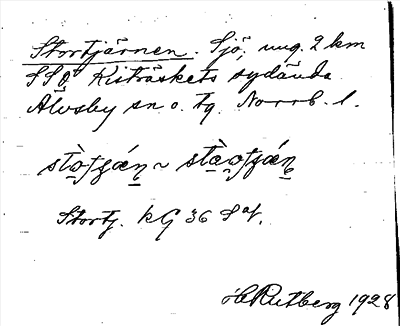 Stortjärnen. Sjö, ung. 2 km
SSO Kisträskets sydända
Älvsby sn o. tg. Norrb. l.
Stortj. kG 36 Sat.
H Rutberg 1928